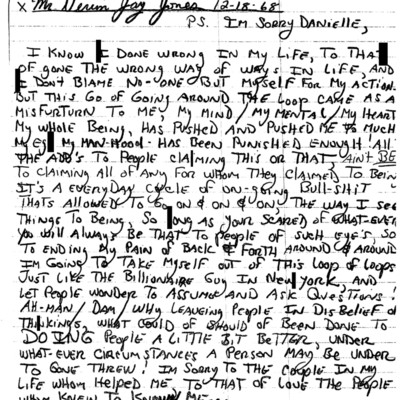 x Mr Derun Jay Jones 12-18-68
P.S. I'm Sorry Danielle,
I Know I Done Wrong In My Life, To That
of gone The Wrong Way of Ways In Life, And
I Don't Blame No-one But Myself For My Action.
But This Go of Going Around The Loop Came As A
Misfurturn To Me, My Mind / My Mental / My Heart
My Whole Being, Has Pushed And Pushed Me To Much
My Man-Hood Has Been Punished Enough All
The ADD's To People Claiming This or That, Ain't Be
To Claiming All of Any For Whom They Claimed To Bein
It's A Everyday Cycle of on-going Bull-Shit
That's Allowed To Go on & on & on. The Way I See
Things To Being, So long As Your Scared of What-Ever
You Will Always Be That To People of Such Eye's, So
To Ending My Pain of Back & Forth Around & Around
I'm Going To Take Myself Out of This Loop of Loops
Just Like The Billionaire Guy In New York, And
Let People Wonder To Assume And Ask Questions!
Ah-Man / Dam / Why Leaveing People In Disbelief of
Thikings, What Could of Should of Been Done To
Doing People A Little Bit Better, Under
What-Ever Circumstances A Person May Be Under
To Gone Threw! I'm Sorry To The Couple In My
Life Whom Helped Me, To That of Love The People
Whom Knew To Know Me